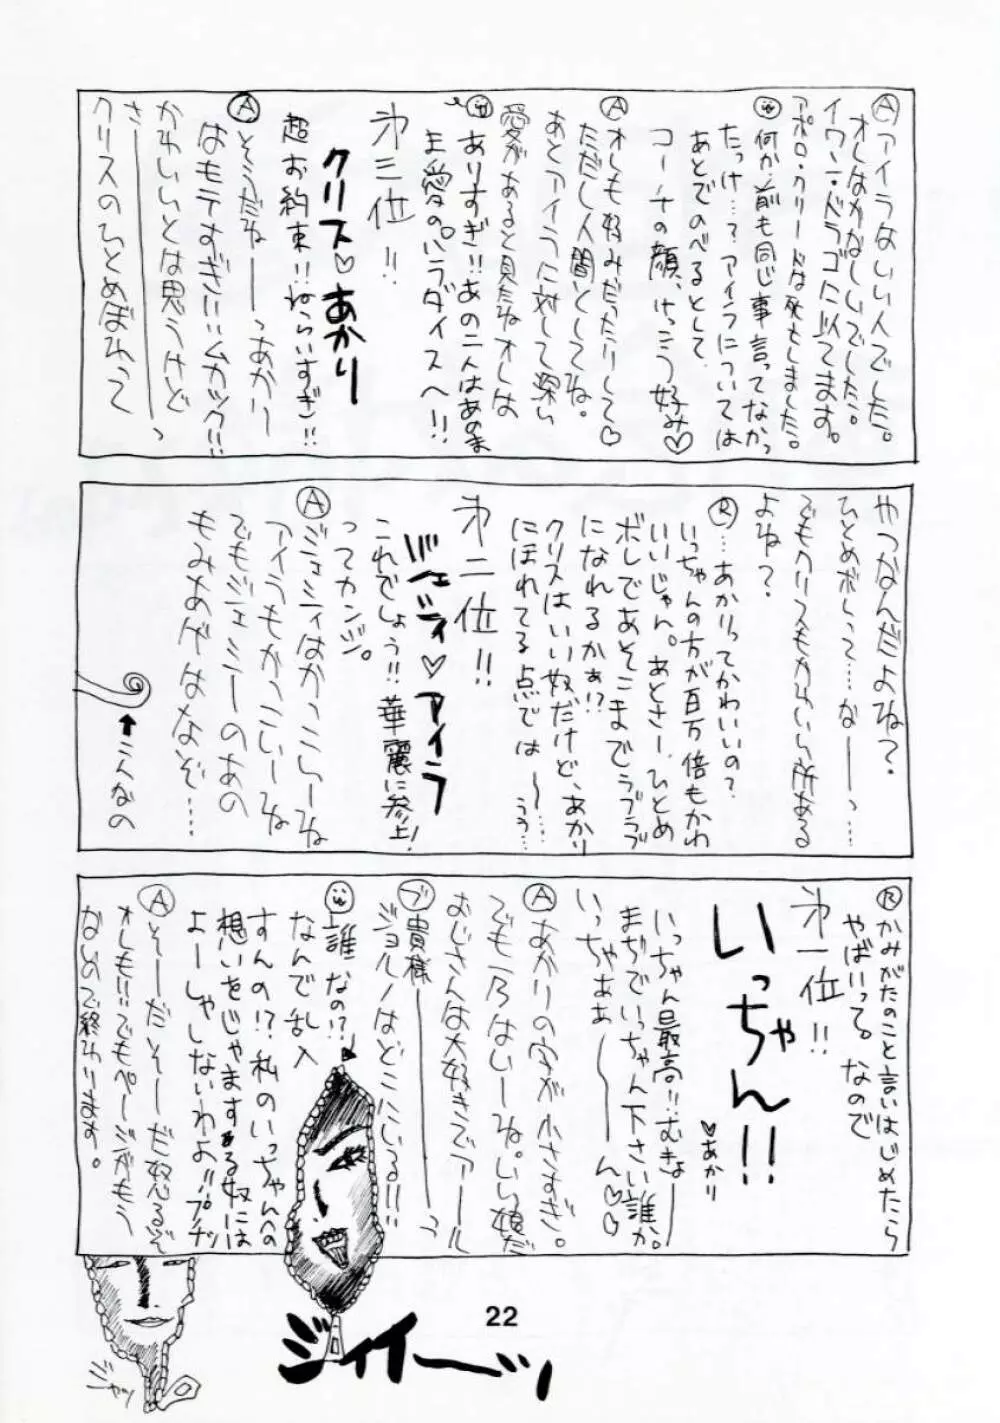 Ⓐアイラはいい人でした。
オレはかなしいでした。
イワン・ドラゴに似てます。
アポロ・クリードは死にました。
何か前も同じ事言ってなかっ
たっけ…?アイラについては
あとでのべるとして、
コーチの顔、けっこう好み♡
Ⓐオレも好みだったりして♡
ただし人間としてね。
あとアイラに対して深い
愛があると見たねオレは
ありすぎ!!あの二人はあのまま
愛のパラダイスへ!!
オ三位!!
クリス♡あかり
超お約束!!ねらいすぎ!!
Ⓐそうだね――っあかり
はモテすぎ!!ムカツク!!
かわいいとは思うけど
さ――――っ
クリスのひとめぼれって
やつなんだよね?
ひとめボレって…な――っ…
でもクリスもかわいい所ある
よね?
Ⓡ…あかりってかわいいの?
いっちゃんの方が百万倍もかわ
いいじゃん。あとさー、ひとめ
ボレであそこまでラブラブ
になれるかぁ!?
クリスはいい奴だけど、あかり
にほれてる点では〜…うぅ…
オ二位!!
ジェシィ♡アイラ
これでしょう!!華麗に参上!
ってカンジ。
Ⓐジェシィはかっこいーね
アイラもかっこいーね
でもジェシーのあの
もみあげはなぞ…
←こんなの
Ⓡかみがたのこと言いはじめたら
やばいって。なので
オ一位!!
いっちゃん!!
♡あかり
いっちゃん最高!!むきょ――
まぢでいっちゃん下さい誰か。
いっちゃああ――――ん♡♡
Ⓐあかりの字が小さすぎ。
でも一乃はいーね。いい娘だ
おじさんは大好きでアール
ブ貴様――――っ
ジョルノはどこにいる!!
誰なの!?
なんで乱入
すんの!?私のいっちゃんへの
想いをじゃまする奴には
よーしゃしないわよ!!プチッ
Ⓐそーだそーだ怒るぞ
オレも!!でもページがもう
ないので終わります。
ジィィーッ
ジャッ
22